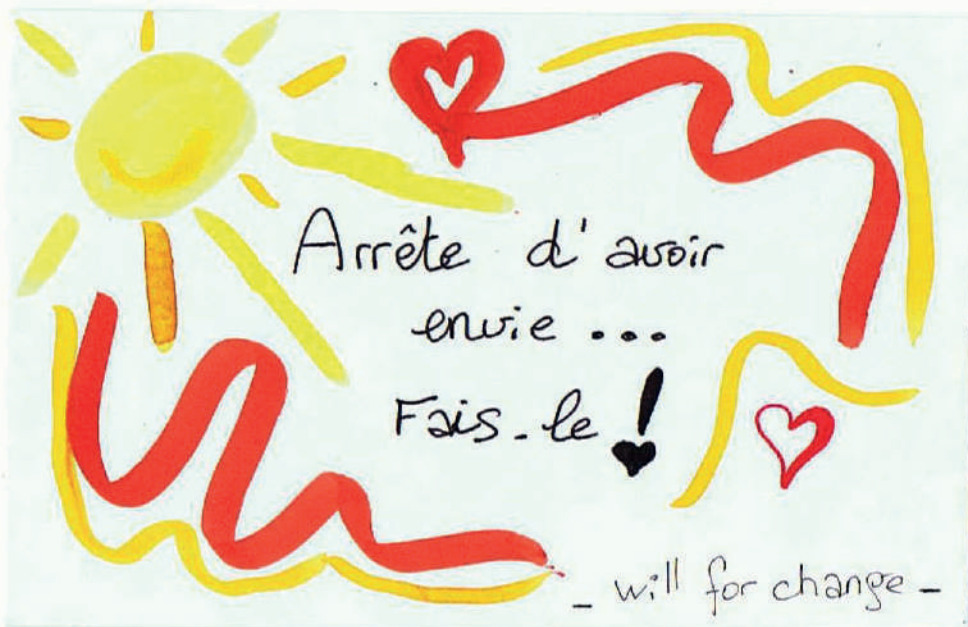 Arrête d'avoir
envie ...
Fais-le !
- will for change -